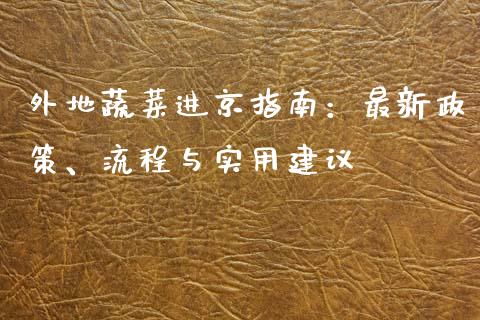 外地蔬菜进京指南：最新政
策、流程与实用建议